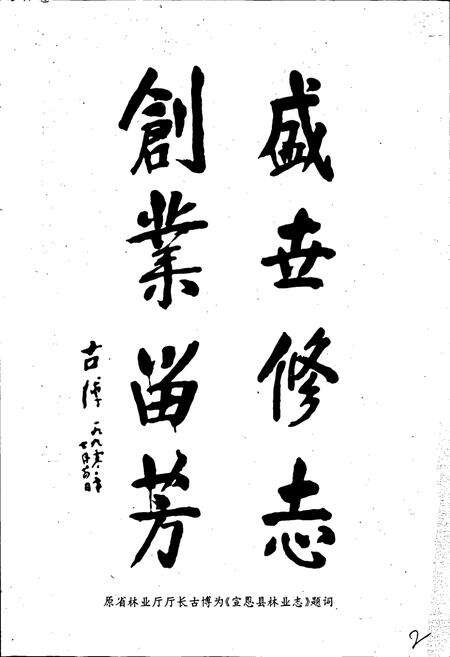 盛世修志
創業留芳
古博
原省林业厅厅长古博为《宣恩县林业志》题词
2